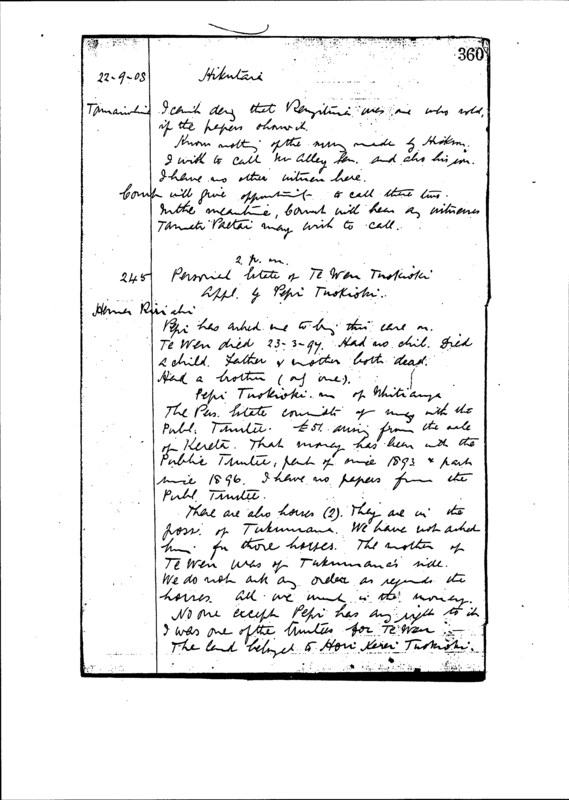 360
22-9-03 Hikutaia
I can't deny that was one who sold,
if the papers show it.
Know nothing of the money made by
I wish to call Mr Alley Sen. and also his son.
I have no other witness here.
Court will give opportunity to call these two.
In the meantime, Court will hear any witnesses
Tamati Paetai may wish to call.
2 p.m.
245 Personal Estate of Te Wera Tuokioki
Appl. by Pepi Tuokioki.
Pepi has asked me to bring this case on.
Te Wera died 23-3-97. Had no chil. Died
a child. Father & mother both dead.
Had a brother (only one).
Pepi Tuokioki. of Whitianga
The Pers. Estate consists of money with the
Publ. Trustee. £51. arising from the sale
of Kerete. That money has been with the
Public Trustee, part of since 1893 & part
since 1896. I have no papers from the
Publ. Trustee.
There are also horses (2). They are in the
poss. of Tukumana. We have not asked
him for those horses. The mother of
Te Wera was of Tukumana's side.
We do not ask any order as regards the
horses. All we want is the money.
No one except Pepi has any right to it
I was one of the trustees for Te Wera.
The land belonged to Hori Kerei Tuokioki.